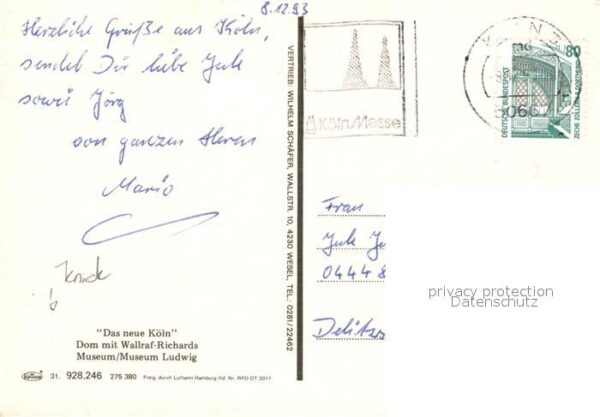 8.12.93
Herzliche Grüße aus Köln,
sendet Dir liebe Jule
sowie Jörg
von ganzen Herzen
Mario
Knick
"Das neue Köln"
Dom mit Wallraf-Richards
Museum/Museum Ludwig
31. 928.246 275 380 Freig. durch Luftamt Hamburg lfd. Nr. RPD OT 2017
VERTRIEB: WILHELM SCHÄFER, WALLSTR. 10, 4230 WESEL, TEL.: 0281/22462
Köln/Messe
80
DEUTSCHE BUNDESPOST
ZECHE ZOLLERN II DORTMUND
Frau
Jule
04448
privacy protection
Datenschutz